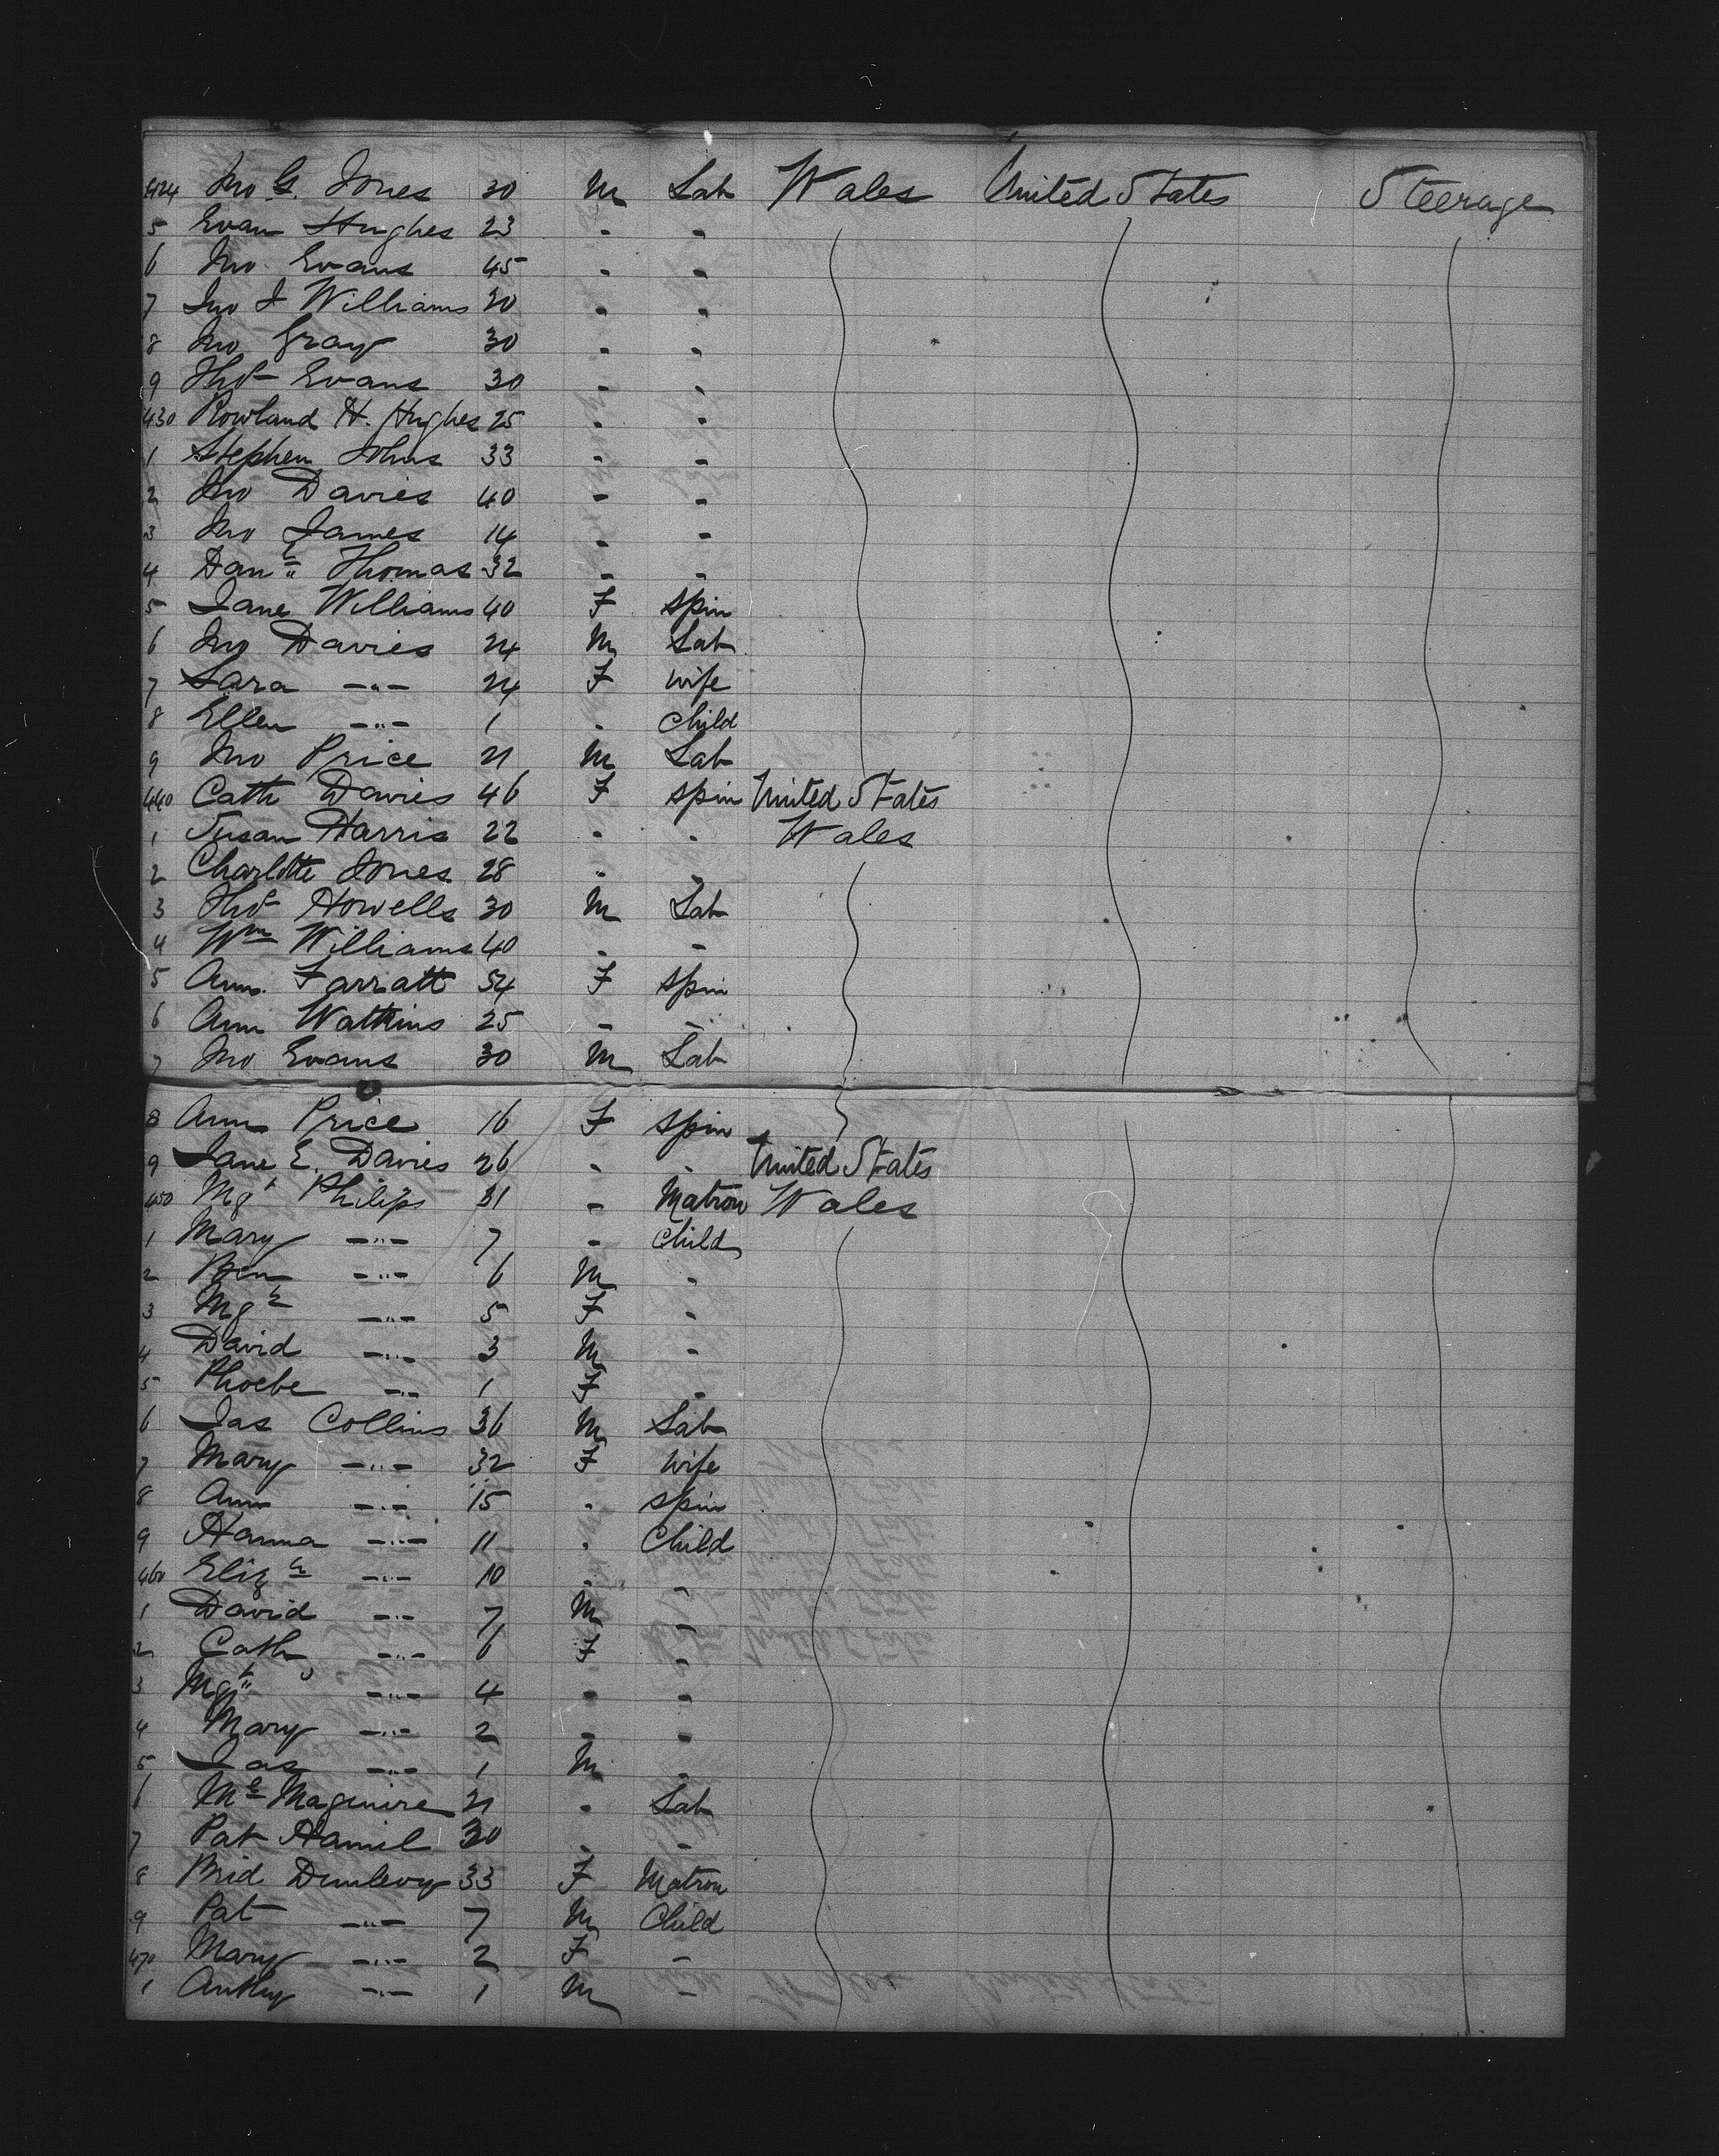 424 Jno G. Jones 30 M Lab Wales United States Steerage
5 Evan Hughes 23 " "
6 Jno Evans 45 " "
7 Jno J Williams 20 " "
8 Jno Gray 30 " "
9 Thos Evans 30 " "
430 Rowland H. Hughes 25 " "
1 Stephen Johns 33 " "
2 Jno Davies 40 " "
3 Jno James 14 " "
4 Danl Thomas 32 " "
5 Jane Williams 40 F Spin
6 Jno Davies 24 M Lab
7 Sara -"- 24 F wife
8 Ellen -"- 1 " Child
9 Jno Price 21 M Lab
440 Cath Davies 46 F Spin United States
1 Susan Harris 22 " " Wales
2 Charlotte Jones 28 " "
3 Thos Howells 30 M Lab
4 Wm Williams 40 " "
5 Ann Farratt 54 F Spin
6 Ann Watkins 25 " "
7 Jno Evans 30 M Lab
8 Ann Price 16 F Spin
9 Jane E. Davies 26 " " United States
450 Mgt Philips 31 " Matron Wales
1 Mary -"- 7 " Child
2 Ben -"- 6 M "
3 Mgt -"- 5 F "
4 David -"- 3 M "
5 Phoebe -"- 1 F "
6 Jas Collins 36 M Lab
7 Mary -"- 32 F wife
8 Ann -"- 15 " Spin
9 Hanna -"- 11 " Child
460 Elizh -"- 10 " "
1 David -"- 7 M "
2 Cath -"- 6 F "
3 Mgt -"- 4 " "
4 Mary -"- 2 " "
5 Jas -"- 1 M "
6 Mc Maguire 21 " Lab
7 Pat Hamil 30 " "
8 Brid Dunlevy 33 F Matron
9 Pat -"- 7 M Child
470 Mary -"- 2 F "
1 Anthy -"- 1 M "